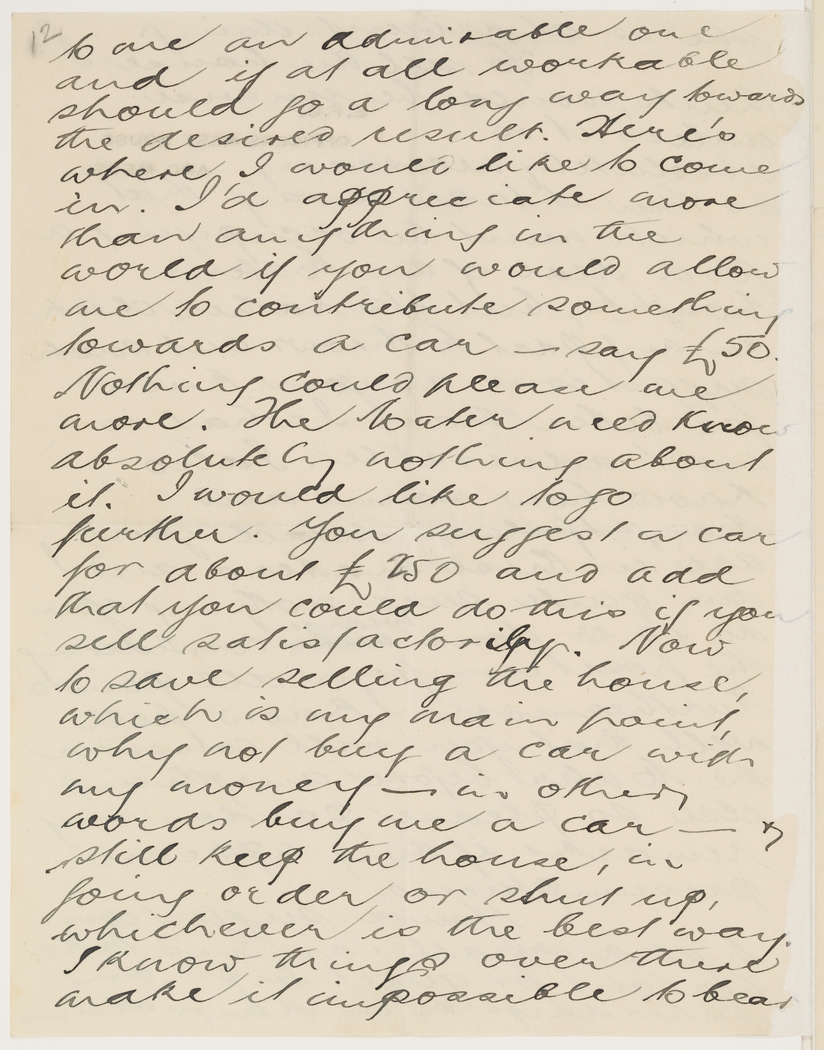 12
to me an admirable one
and if at all workable
should go a long way towards
the desired result. Here's
where I would like to come
in. I'd appreciate more
than anything in the
world if you would allow
me to contribute something
towards a car — say £50.
Nothing could please me
more. The Mater need know
absolutely nothing about
it. I would like to go
further. You suggest a car
for about £250 and add
that you could do this if you
sell satisfactorily. Now
to save selling the house,
which is my main point,
why not buy a car with
my money — in other
words buy me a car — &
still keep the house, in
going order or shut up,
whichever is the best way.
I know things over there
make it impossible to bear